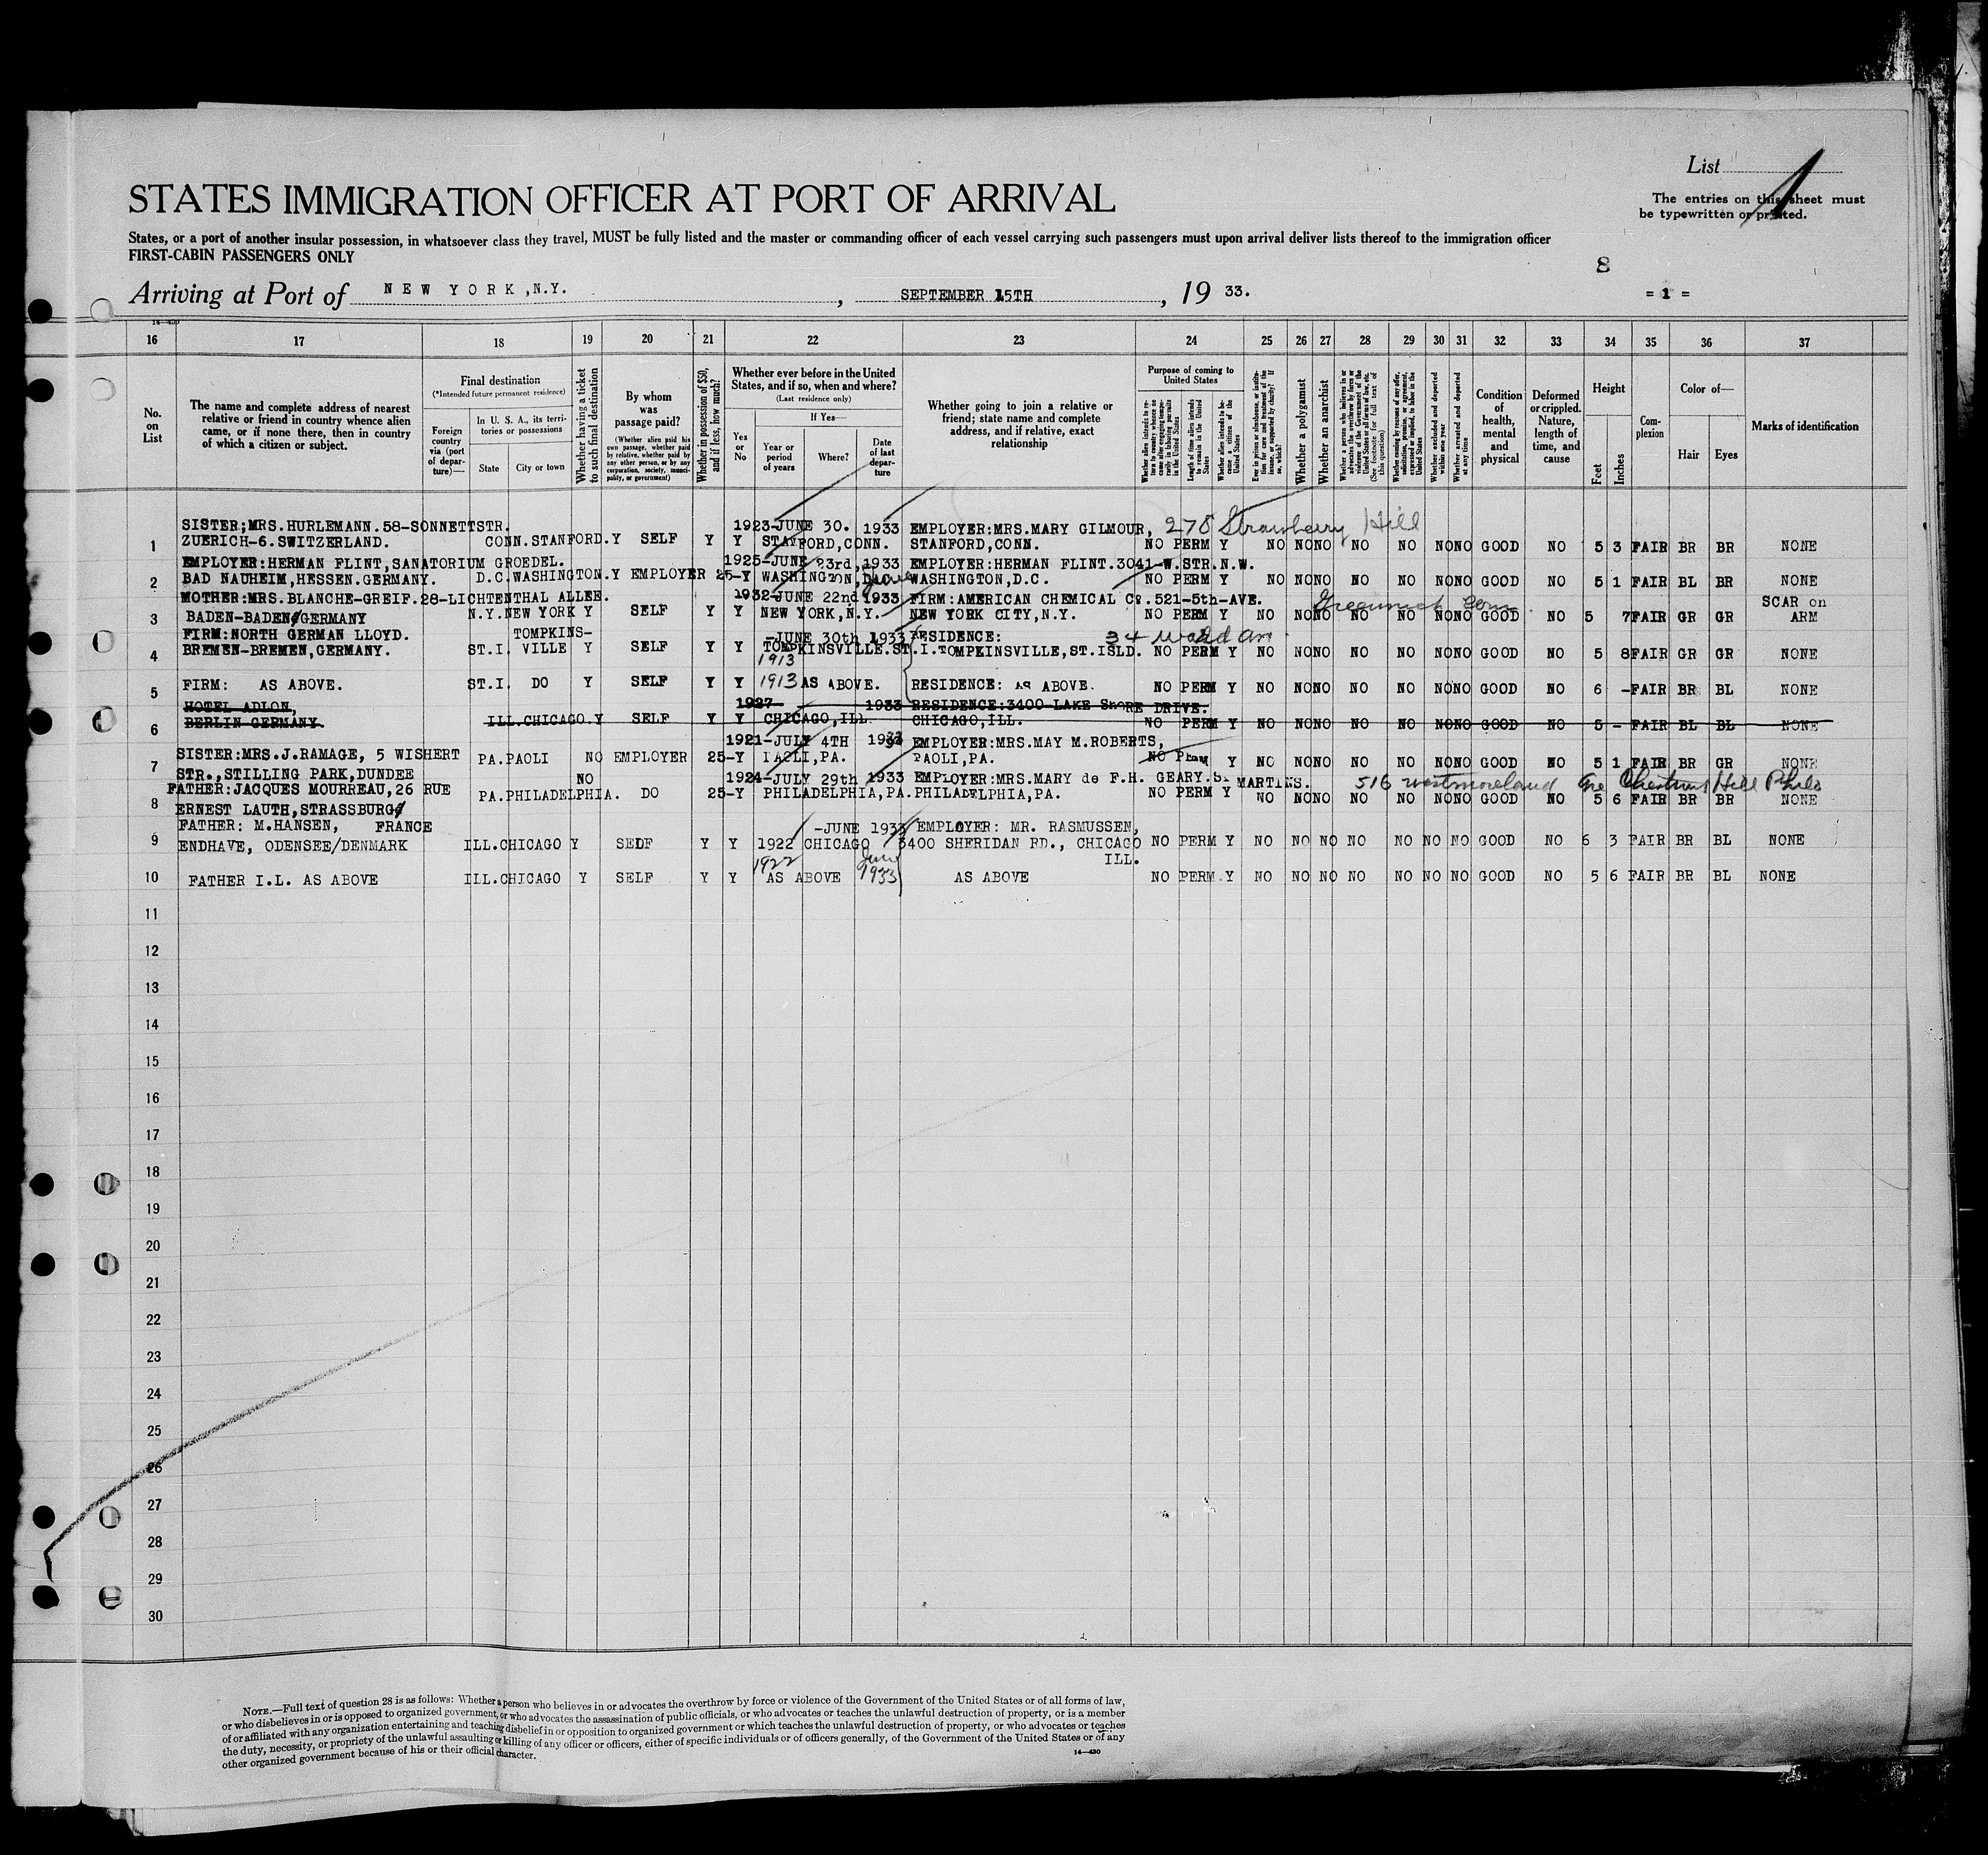 List 1
STATES IMMIGRATION OFFICER AT PORT OF ARRIVAL
The entries on this sheet must
be typewritten or printed.
States, or a port of another insular possession, in whatsoever class they travel, MUST be fully listed and the master or commanding officer of each vessel carrying such passengers must upon arrival deliver lists thereof to the immigration officer
FIRST-CABIN PASSENGERS ONLY
8
Arriving at Port of NEW YORK, N.Y. , SEPTEMBER 15TH , 19 33.
= 1 =
14—430
16 17 18 19 20 21 22 23 24 25 26 27 28 29 30 31 32 33 34 35 36 37
No. on List
The name and complete address of nearest relative or friend in country whence alien came, or if none there, then in country of which a citizen or subject.
Final destination
(*Intended future permanent residence)
Foreign country via (port of departure)—
In U. S. A., its territories or possessions
State
City or town
Whether having a ticket to such final destination
By whom was passage paid?
(Whether alien paid his own passage, whether paid by relative, whether paid by any other person, or by any corporation, society, municipality, or government)
Whether in possession of $50, and if less, how much?
Whether ever before in the United States, and if so, when and where?
(Last residence only)
Yes or No
If Yes—
Year or period of years
Where?
Date of last departure
Whether going to join a relative or friend; state name and complete address, and if relative, exact relationship
Purpose of coming to United States
Whether alien intends to return to country whence he came after engaging temporarily in laboring pursuits in the United States
Length of time alien intends to remain in the United States
Whether alien intends to become a citizen of the United States
Ever in prison or almshouse, or institution for care and treatment of the insane, or supported by charity? If so, which?
Whether a polygamist
Whether an anarchist
Whether a person who believes in or advocates the overthrow by force or violence of the Government of the United States or all forms of law, etc. (See footnote for full text of this question)
Whether coming by reason of any offer, solicitation, promise, or agreement, expressed or implied, to labor in the United States
Whether excluded and deported within one year
Whether arrested and deported at any time
Condition of health, mental and physical
Deformed or crippled. Nature, length of time, and cause
Height
Feet
Inches
Complexion
Color of—
Hair
Eyes
Marks of identification
SISTER;MRS.HURLEMANN.58-SONNETTSTR. 1923-JUNE 30. 1933 EMPLOYER:MRS.MARY GILMOUR, 278 Strawberry Hill
1 ZUERICH-6.SWITZERLAND. CONN.STANFORD.Y SELF Y Y STAFFORD,CONN. STANFORD,CONN. NO PERM Y NO NO NO NO NO NO NO GOOD NO 5 3 FAIR BR BR NONE
EMPLOYER:HERMAN FLINT,SANATORIUM GROEDEL. 1925-JUNE 23rd,1933 EMPLOYER:HERMAN FLINT.3041-W.STR.N.W.
2 BAD NAUHEIM,HESSEN.GERMANY. D.C.WASHINGTON.Y EMPLOYER 25-Y WASHINGTON,D.C. June WASHINGTON,D.C. NO PERM Y NO NO NO NO NO NO NO GOOD NO 5 1 FAIR BL BR NONE
MOTHER:MRS.BLANCHE-GREIF.28-LICHTENTHAL ALLEE. 1932-JUNE 22nd 1933 FIRM:AMERICAN CHEMICAL Co.521-5th-AVE. Greenwich Conn. SCAR on
3 BADEN-BADEN GERMANY N.Y.NEW YORK Y SELF Y Y NEW YORK,N.Y. NEW YORK CITY,N.Y. NO PERM Y NO NO NO NO NO NO NO GOOD NO 5 7 FAIR GR GR ARM
FIRM:NORTH GERMAN LLOYD. TOMPKINS- -JUNE 30th 1933 RESIDENCE: 34
4 BREMEN-BREMEN,GERMANY. ST.I. VILLE Y SELF Y Y TOMPKINSVILLE.ST.I. TOMPKINSVILLE,ST.ISLD. NO PERM Y NO NO NO NO NO NO NO GOOD NO 5 8 FAIR GR GR NONE
1913
5 FIRM: AS ABOVE. ST.I. DO Y SELF Y Y 1913 AS ABOVE. RESIDENCE: AS ABOVE. NO PERM Y NO NO NO NO NO NO NO GOOD NO 6 - FAIR BR BL NONE
HOTEL ADLON, 1927- 1933 RESIDENCE:3400-LAKE ShORE DRIVE.
6 BERLIN GERMANY. ILL.CHICAGO.Y SELF Y Y CHICAGO,ILL. CHICAGO,ILL. NO PERM Y NO NO NO NO NO NO NO GOOD NO 5 - FAIR BL BL NONE
1921-JULY 4TH 1933 EMPLOYER:MRS.MAY M.ROBERTS,
7 SISTER:MRS.J.RAMAGE, 5 WISHERT PA.PAOLI NO EMPLOYER 25-Y PAOLI,PA. PAOLI,PA. NO PERM Y NO NO NO NO NO NO NO GOOD NO 5 1 FAIR BR GR NONE
STR.,STILLING PARK,DUNDEE NO 1924-JULY 29th 1933 EMPLOYER:MRS.MARY de F.H. GEARY.St MARTINS. 516 Westmoreland Ave Chestnut Hill Phila
FATHER:JACQUES MOURREAU,26 RUE
8 ERNEST LAUTH,STRASSBURG PA.PHILADELPHIA. DO 25-Y PHILADELPHIA,PA. PHILADELPHIA,PA. NO PERM Y NO NO NO NO NO NO NO GOOD NO 5 6 FAIR BR BR NONE
FATHER: M.HANSEN, FRANCE -JUNE 1933 EMPLOYER: MR. RASMUSSEN,
9 ENDHAVE, ODENSEE/DENMARK ILL.CHICAGO Y SELF Y Y 1922 CHICAGO 3400 SHERIDAN RD., CHICAGO NO PERM Y NO NO NO NO NO NO NO GOOD NO 6 3 FAIR BR BL NONE
1922 June ILL.
10 FATHER I.L. AS ABOVE ILL.CHICAGO Y SELF Y Y AS ABOVE 1933 AS ABOVE NO PERM.Y NO NO NO NO NO NO NO GOOD NO 5 6 FAIR BR BL NONE
11
12
13
14
15
16
17
18
19
20
21
22
23
24
25
26
27
28
29
30
NOTE.—Full text of question 28 is as follows: Whether a person who believes in or advocates the overthrow by force or violence of the Government of the United States or of all forms of law,
or who disbelieves in or is opposed to organized government, or who advocates the assassination of public officials, or who advocates or teaches the unlawful destruction of property, or is a member
of or affiliated with any organization entertaining and teaching disbelief in or opposition to organized government or which teaches the unlawful destruction of property, or who advocates or teaches
the duty, necessity, or propriety of the unlawful assaulting or killing of any officer or officers, either of specific individuals or of officers generally, of the Government of the United States or of any
other organized government because of his or their official character.
14—430